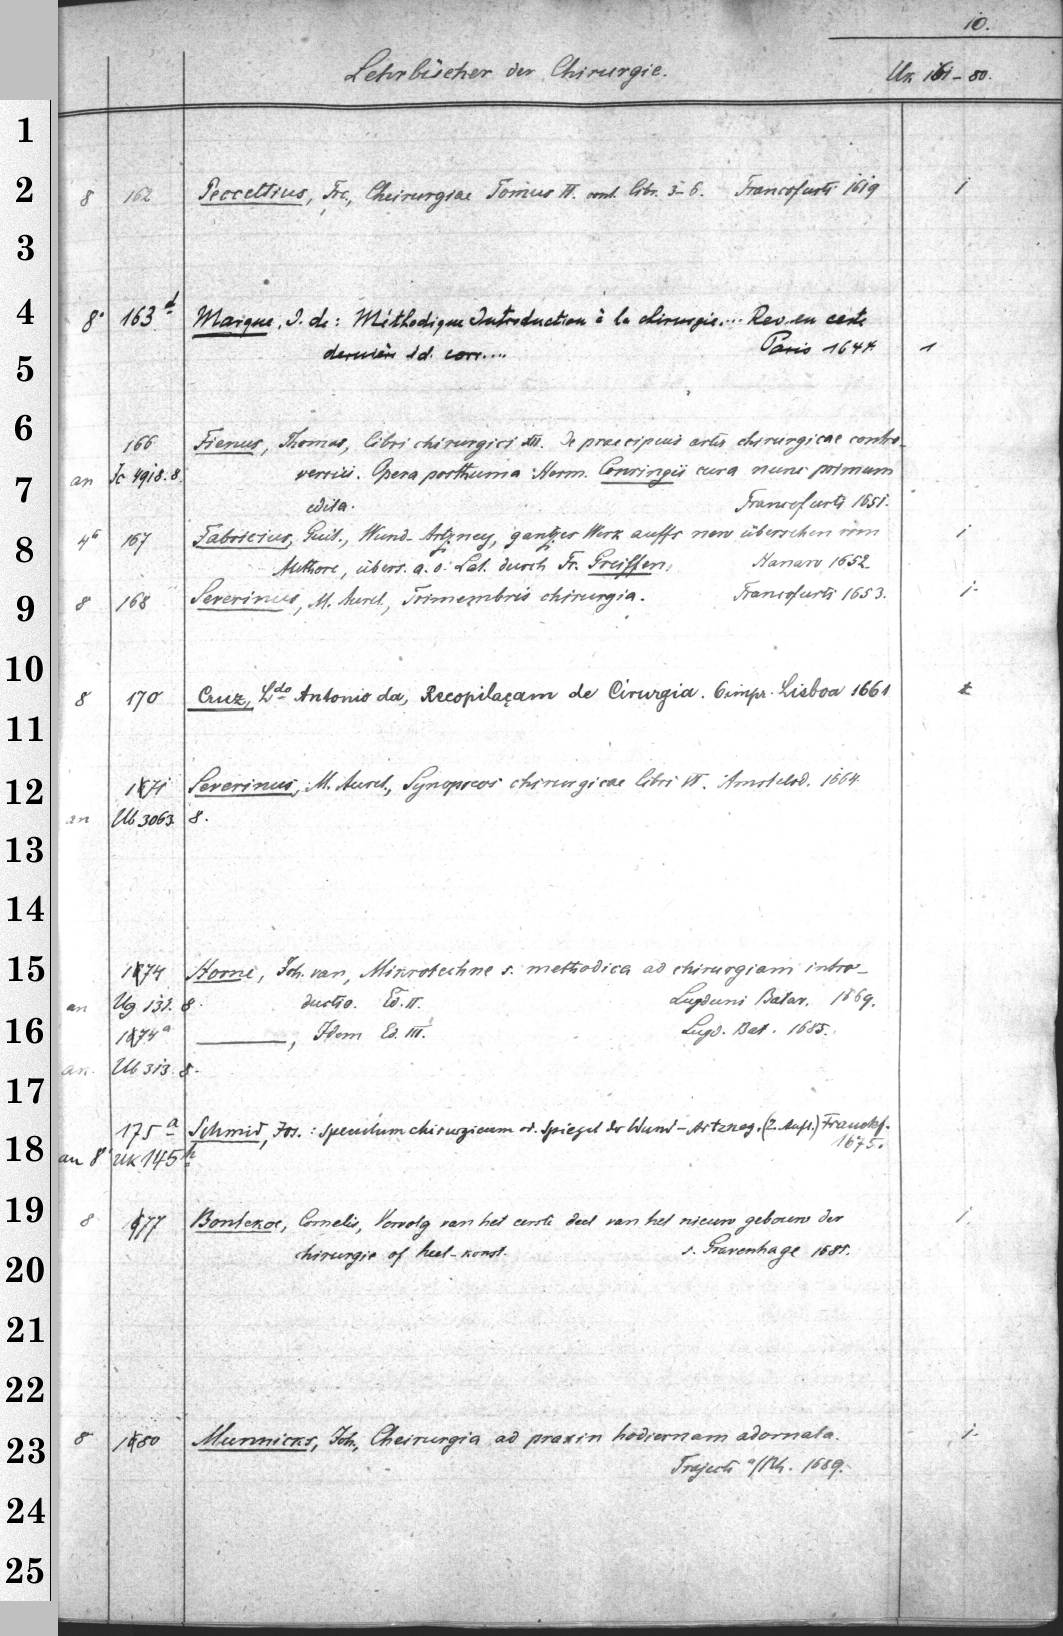 10.
Lehrbücher der Chirurgie. Uk 161-80.
1
2 8 162 Peccettius, Frc., Cheirurgiae Tomus II. cont. libr. 3-6. Francofurti 1619 1
3
4 8° 163d Marque, J. de: Méthodique Introduction à la chirurgie.... Rev. en cette
5 dernière éd. corr.... Paris 1644 1
6 166 Fienus, Thomas, libri chirurgici XII. De praecipuis artis chirurgicae contro-
7 an Jc 4918. 8. versiis. Opera posthuma Herm. Conringii cura nunc primum
edita. Francofurti 1651.
8 167 Fabricius, Guil., Wund-Artzney, gantzes Werk auffs new übersehen vom 1
Authore, übers. a. d. Lat. durch Fr. Greiffen, Hanaw 1652
9 8 168 Severinus, M. Aurel., Trimembris chirurgia. Francofurti 1653. 1.
10
8 170 Cruz, Ldo Antonio da, Recopilaçam de Cirurgia. 6 impr. Lisboa 1661
11
12 171 Severinus, M. Aurel., Synopseos chirurgicae libri VI. Amstelod. 1664.
an Ub 3063 8.
13
14
15 174 Horne, Joh. van, Mikrotechne s. methodica ad chirurgiam intro-
an Ug 132. 8. ductio. Ed. II. Lugduni Batav. 1669.
16 174a ———, Idem Ed. III. Lugd. Bat. 1685.
an Ub 313. 8.
17
175a Schmid, Jos.: Speculum chirurgicum od. Spiegel der Wund-Artzney. (2. Aufl.) Franckf.
18 an 8° Uk 145 h 1675.
19 8 177 Bontekoe, Cornelis, Vervolg van het eerste deel van het nieuw gebouw der 1.
20 chirurgie of heel-konst. s. Gravenhage 1685.
21
22
23 8 180 Munnicks, Joh., Cheirurgia ad praxin hodiernam adornata. 1.
Trajecti a/Rh. 1689.
24
25